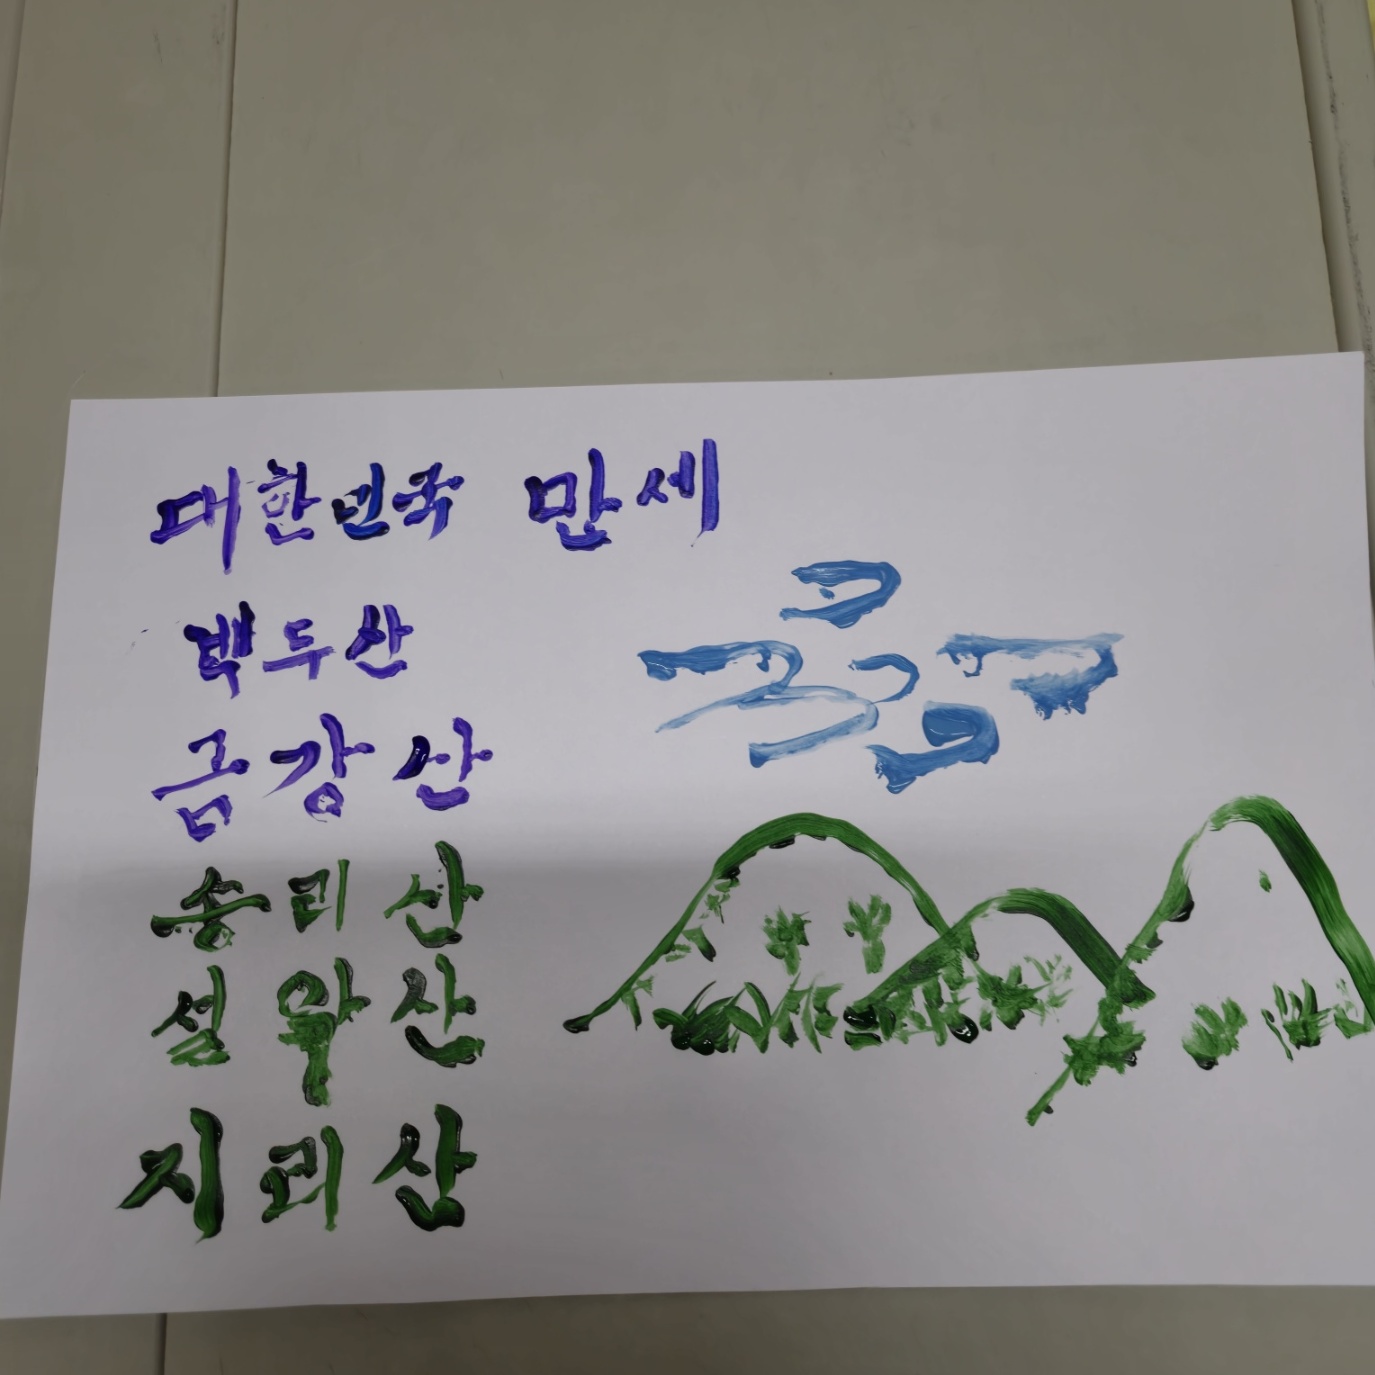 대한민국 만세
백두산
금강산
송리산
설악산
지리산